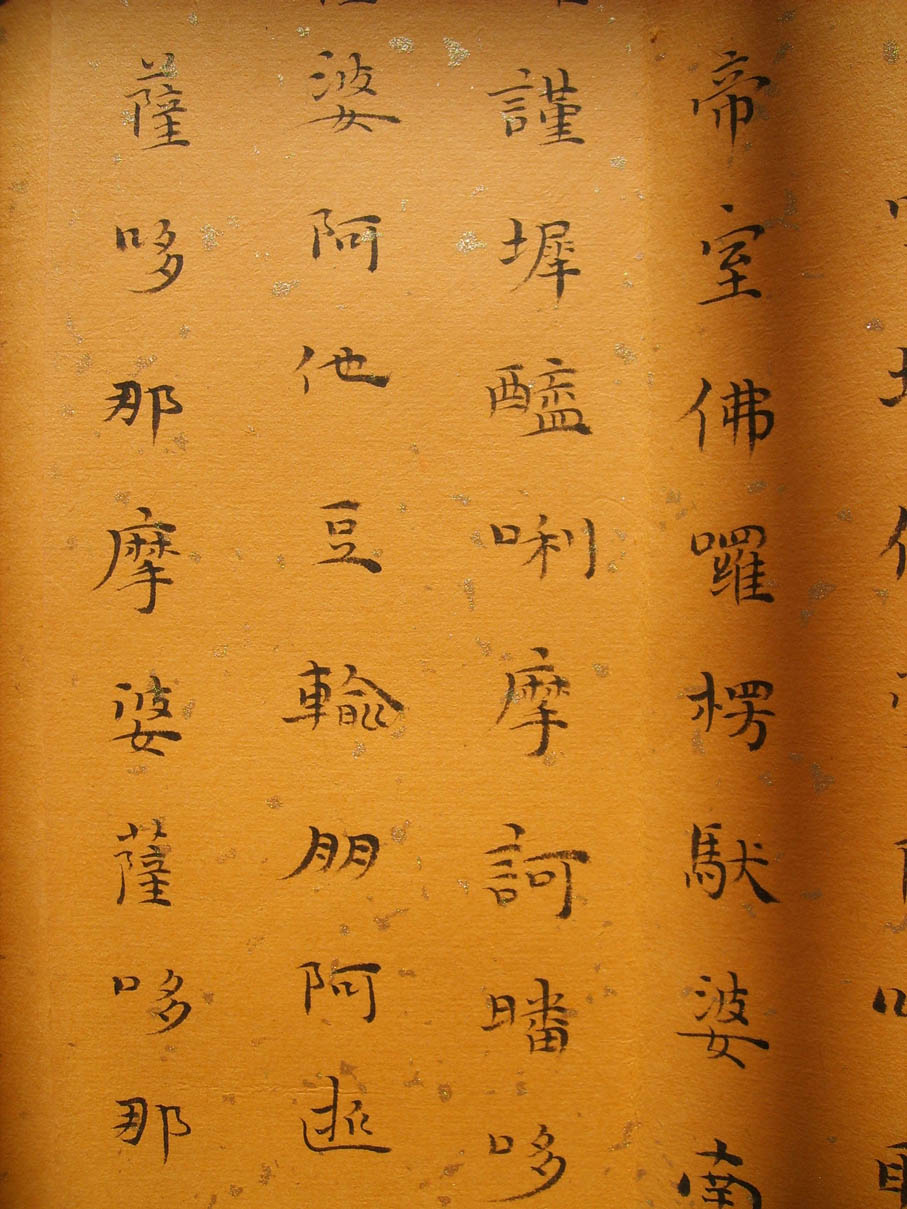 帝室佛囉楞馱婆南
謹墀醯唎摩訶皤哆
婆阿他豆輸朋阿逝
薩哆那摩婆薩哆那